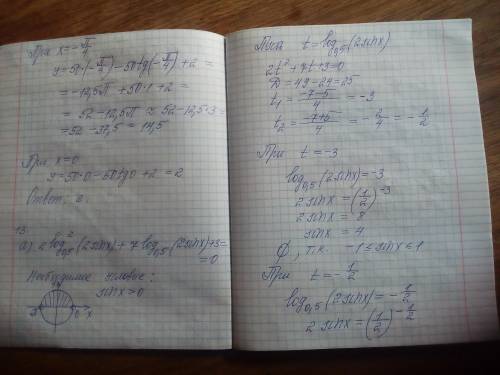 При x=-π/4
y=50·(-π/4)-50tg(-π/4)+2 =
= -12,5π +50·1 +2 =
= 52-12,5π ≈ 52-12,5·3 =
=52-37,5 = 14,5
При x=0
y=50·0-50tg0+2 =2
Ответ:
13
а) 2log²0,5(2sinx)+7log0,5(2sinx)+3=
=0
Необходимое условие:
sinx>0
x
Пусть t=log0,5(2sinx)
2t²+7t+3=0
D=49-24=25
t₁=(-7-5)/4 = -3
t₂=(-7+5)/4 = -2/4 = -1/2
При t=-3
log0,5(2sinx)=-3
2sinx=(1/2)⁻³
2sinx = 8
sinx = 4
∅, т.к. -1≤sinx≤1
При t=-1/2
log0,5(2sinx)=-1/2
2sinx=(1/2)^(-1/2)